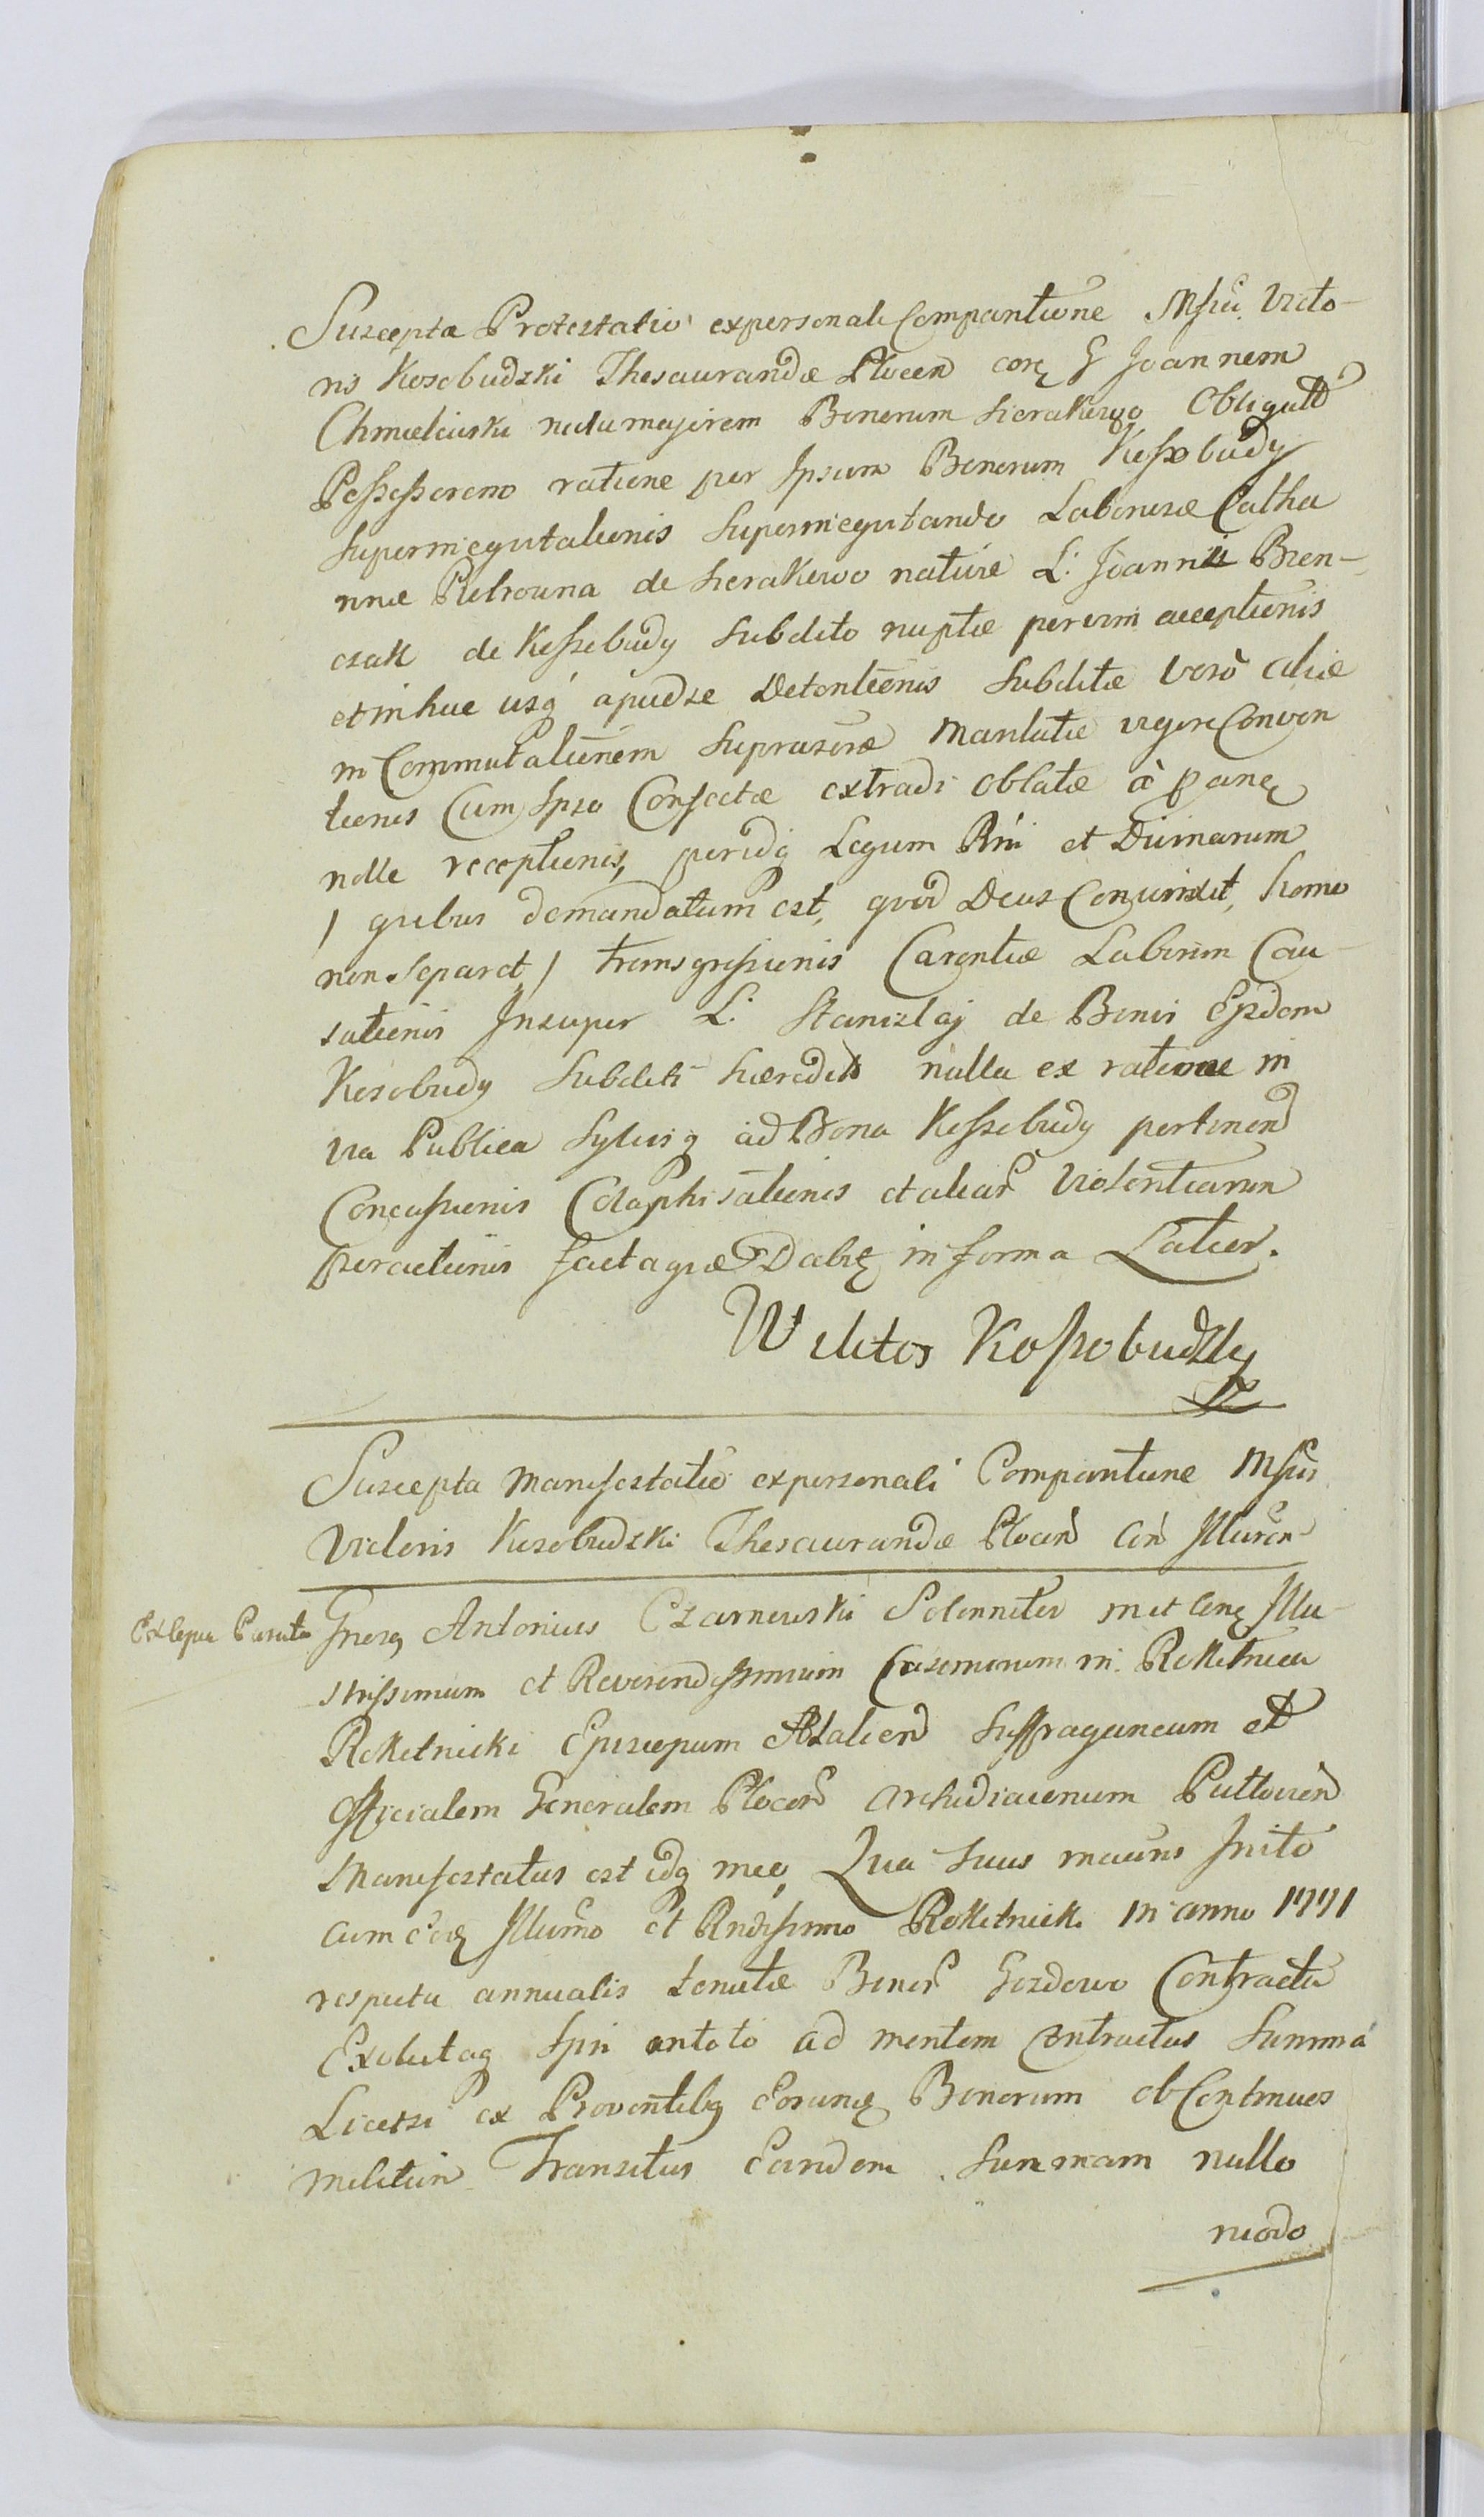 Suscepta Protestatio ex personali Compantione Mfici Victo-
ris Kosobudzki Thesaurandæ Plocen con G Joannem
Chmielewski modernum Bonorum Sierakowo Obligatt
Possessorem ratione per Ipsum Bonorum Kossobudy
Laboriosæ Catha
rinæ Pietrowna de Sierakowo natiuæ L: Joannis Bren-
czak de Kossobudy Subdito nuptæ per acceptionis
et in huc usq apud se Detentionis Subditæ Verò aliæ
in Commutationem vigore Conven
tionis Cum Ipso Confectæ extradi oblatæ à
nolle receptionis, peridq Legum Rni et Diuinarum
/ quibus demandatum est, quod Deus Conjunxit, homo
non separet / transgressionis Carentiæ Laborum Cau-
sationis Insuper L: Stanislaj de Bonis Eysdem
Kosobudy Subditi hæredit nulla ex ratione in
via Publica Syluisq ad Bona Kossobudy pertinend
Concussionis Colaphisationis et aliar Violentiarum
peractionis factaque Dabit in forma Latior.
Wiktor Kossobudzky
Suscepta Manifestatio ex personali Compantione Mfici
Victoris Kosobudzki Thesaurandæ Plocen Con Illuren
Antonius Czarnowski Solenniter Illu-
strissimum et Reverendissimum in Rokitnica
Rokitnicki Episcopum Suffraganeum et
Officialem Generalem Plocen Archidiaconum Pultovien
Manifestatus est idq Quia Suus Inito
cum Illumo et Rndissimo Rokitnicki in anno 1771
respectu annualis tenutæ Bonor Gozdowo Contractu
Exolutaq Ipsi ad mentem Contractus Summa
Licetsi ex Proventibq Bonorum ob Continuos
militum Transitus Eandem Summam nullo
modo